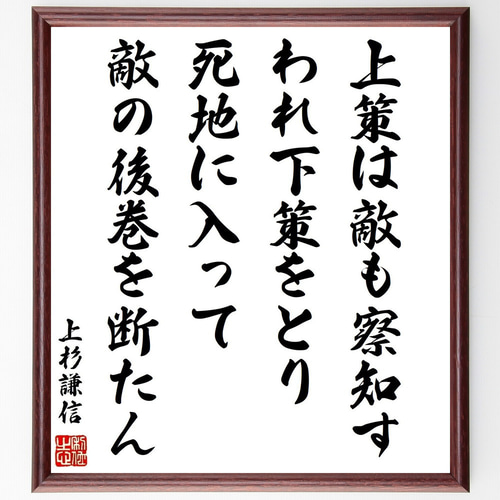 上策は敵も察知す
われ下策をとり
死地に入って
敵の後巻を断たん
上杉謙信